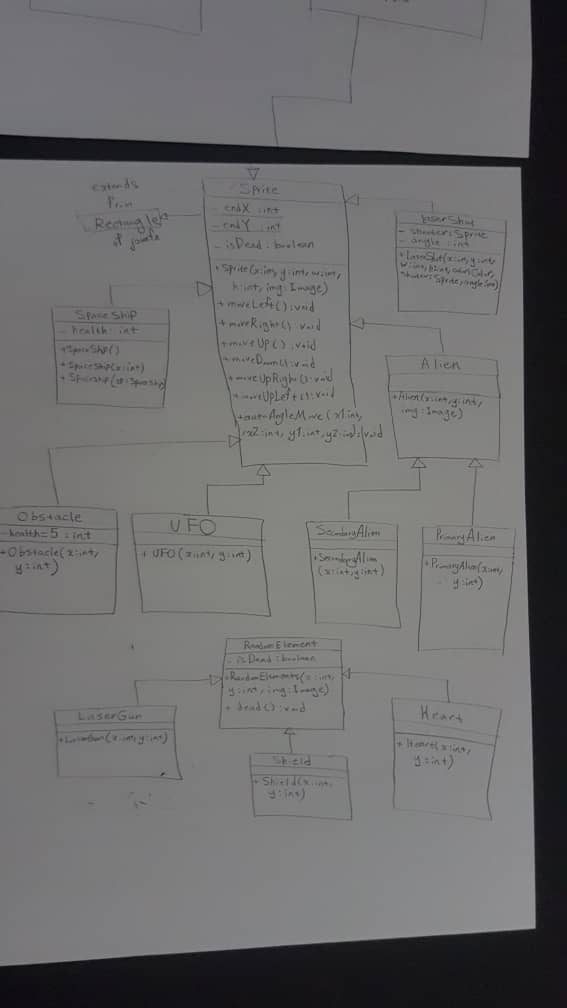 extends
from
Rectangle
of javafx
Sprite
- endX : int
- endY : int
- isDead : boolean
+ Sprite(x:int, y:int, w:int,
h:int, img:Image)
+ moveLeft() : void
+ moveRight() : void
+ moveUp() : void
+ moveDown() : void
+ moveUpRight() : void
+ moveUpLeft() : void
+ autoAngleMove(x1:int,
x2:int, y1:int, y2:int) : void
laserShot
- shooter : Sprite
- angle : int
+ LaserShot(x:int, y:int,
w:int, h:int, color:Color,
shooter:Sprite, angle:int)
SpaceShip
- health : int
+ SpaceShip()
+ SpaceShip(x:int)
+ Spaceship(sp:SpaceShip)
Alien
+ Alien(x:int, y:int,
img:Image)
Obstacle
- health = 5 : int
+ Obstacle(x:int,
y:int)
UFO
+ UFO(x:int, y:int)
SecondaryAlien
+ SecondaryAlien
(x:int, y:int)
PrimaryAlien
+ PrimaryAlien(x:int,
y:int)
RandomElement
- isDead : boolean
+ RandomElements(x:int,
y:int, img:Image)
+ dead() : void
LaserGun
+ LaserGun(x:int, y:int)
Shield
+ Shield(x:int,
y:int)
Heart
+ Heart(x:int,
y:int)